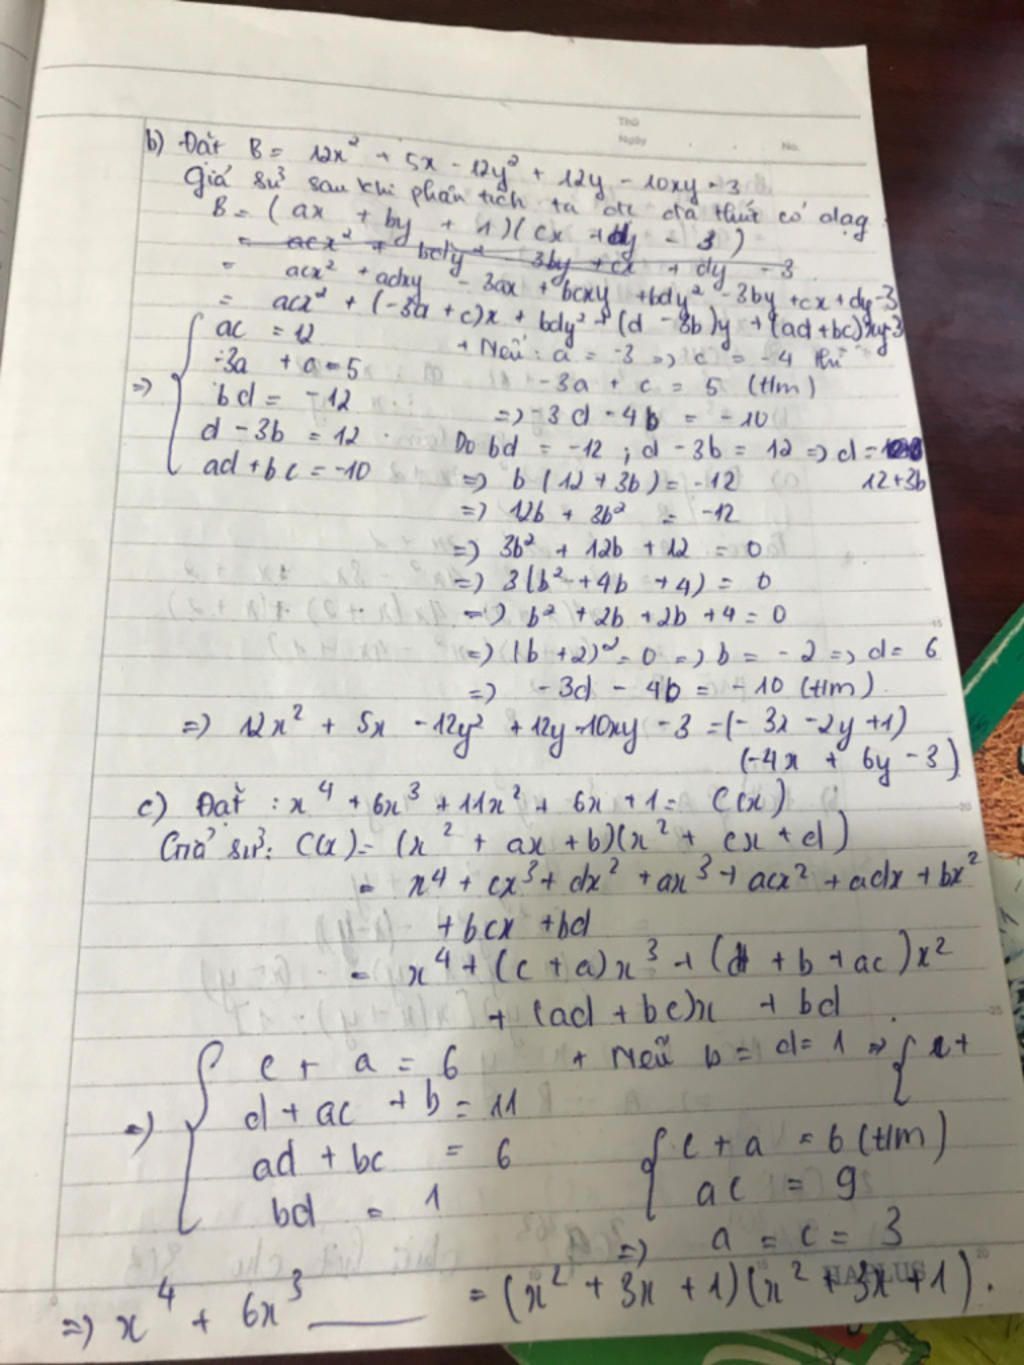 Thứ
Ngày
No.
b) Đặt B = 12x² + 5x - 12y² + 12y - 10xy - 3
Giả sử sau khi phân tích ta đc đa thức có dạng
B = (ax + by + 1)(cx + dy - 3)
= acx² + bdy² - 3by + cx + dy - 3
= acx² + adxy - 3ax + bcxy + bdy² - 3by + cx + dy - 3
= acx² + (-3a + c)x + bdy² + (d - 3b)y + (ad + bc)xy - 3
=> { ac = 12
-3a + a = 5
bd = -12
d - 3b = 12
ad + bc = -10
+ Nếu : a = -3 => c = -4 thì
-3a + c = 5 (t/m)
=> -3d - 4b = -10
Do bd = -12 ; d - 3b = 12 => d =
12 + 3b
=> b (12 + 3b) = -12
=> 12b + 3b² = -12
=> 3b² + 12b + 12 = 0
=> 3(b² + 4b + 4) = 0
=> b² + 2b + 2b + 4 = 0
=> (b + 2)² = 0 => b = -2 => d = 6
=> -3d - 4b = -10 (t/m)
=> 12x² + 5x - 12y² + 12y - 10xy - 3 = (-3x - 2y + 1)
(-4x + 6y - 3)
c) Đặt : x⁴ + 6x³ + 11x² + 6x + 1 = C(x)
Giả sử: C(x) = (x² + ax + b)(x² + cx + d)
= x⁴ + cx³ + dx² + ax³ + acx² + adx + bx²
+ bcx + bd
= x⁴ + (c + a)x³ + (d + b + ac)x²
+ (ad + bc)x + bd
=> { c + a = 6
d + ac + b = 11
ad + bc = 6
bd = 1
+ Nếu b = d = 1 => {
{ c + a = 6 (t/m)
ac = 9
=> a = c = 3
HAPLUS
=> x⁴ + 6x³ ____ = (x² + 3x + 1)(x² + 3x + 1).